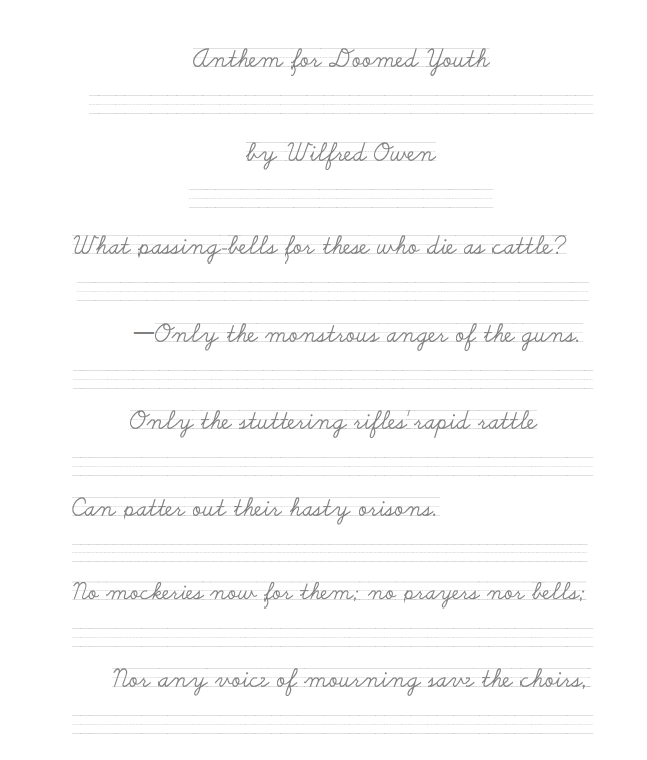 Anthem for Doomed Youth
by Wilfred Owen
What passing-bells for these who die as cattle?
—Only the monstrous anger of the guns.
Only the stuttering rifles' rapid rattle
Can patter out their hasty orisons.
No mockeries now for them; no prayers nor bells;
Nor any voice of mourning save the choirs,